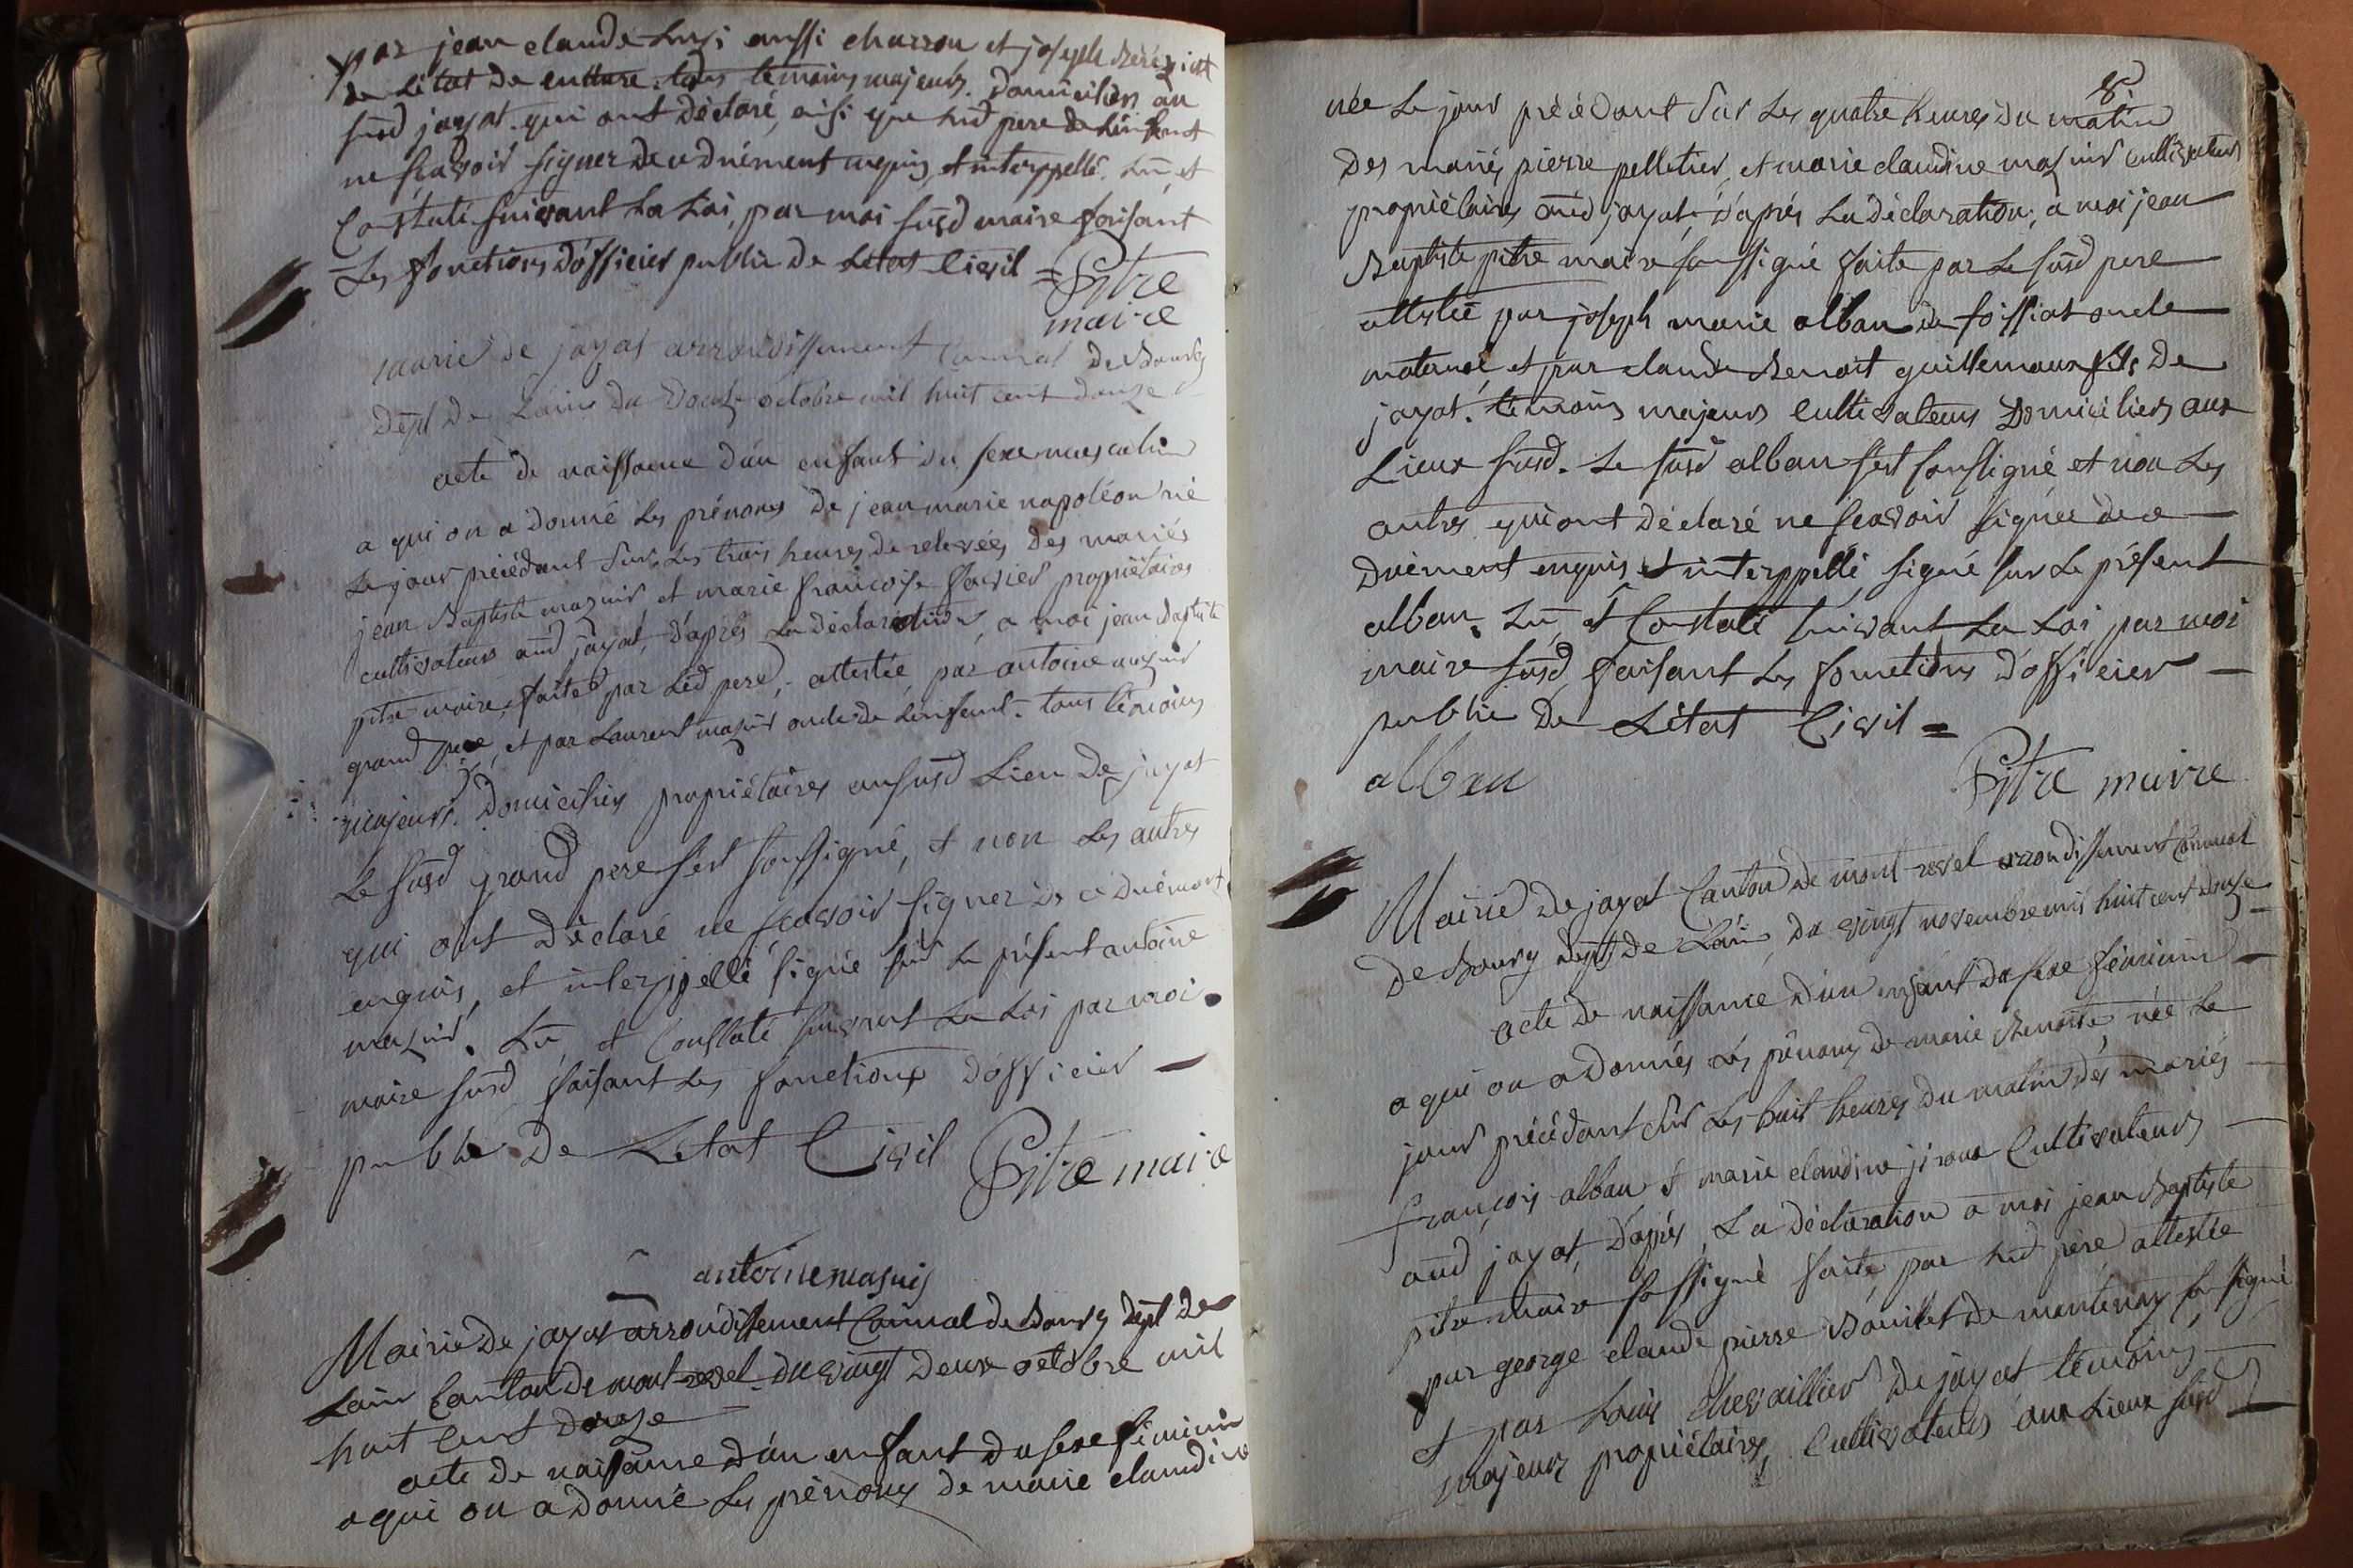 par jean claude aussi charron et joseph
de Létat de culture. tous temoins majeurs. Domiciliés au
susd jayat. qui ont déclaré, ainsi que lusd pere de Linfant
ne scavoir signer de ce duément requis, et interppellé. Lu, et
Constaté suivant La Loi, par moi susd maire faisant
Les fonctions d'officier public de Létat Civil = Pitre
maire
mairie de jayat arrondissement Comnal De Bourg
Dept De Lain du Douze octobre mil huit cent douze
acte de naissance d'un enfant du sexe masculin
a qui on a Donné les prénoms De jean marie napoléon né
Le jour précédant Sur les trois heures de relevées des mariés
jean Baptiste mazuir et marie françoise favier propriétaires
cultivateurs aud jayat, d'après La déclaration, a moi jean Baptiste
pitre maire, faite par Led pere, attestée, par antoine mazuir
grand pere, et par Laurent mazuir oncle de Lenfant. tous témoins
majeurs. Domiciliés propriétaires au susd Lieu De jayat
Le susd grand pere s'est soussigné, et non Les autres
qui ont Déclaré ne scavoir signer de ce duément
enquis, et interppellé signé sur Le présent antoine
mazuir. Lu, et Constaté suivant La Loi par moi
maire susd faisant Les fonctions D'officier
public De Létat Civil Pitre maire
antoine masuir
Mairie De jayat arrondissement Comnal de Bourg Dept De
Lain Canton de mont-revel. du vingt deux octobre mil
huit Cent douze
acte de naissance d'un enfant du sexe féminin
a qui on a donné Les prénoms de marie claudine
8.
née Le jour précédant Sur Les quatre heures du matin
Des mariés pierre pelletier, et marie claudine mazuir Cultivateurs
propriétaires aud jayat, d'après La déclaration, a moi jean
Baptiste pitre maire soussigné faite par Le susd pere
attestée par joseph marie alban de foissiat oncle
maternel, et par claude Benoit guillemaux fils De
jayat. témoins majeurs Cultivateurs Domiciliés aux
Lieux susd. Le susd alban s'est sousigné et non Les
autres qui ont déclaré ne scavoir signer de ce
duément enquis et interppellé, signé sur Le présent
alban. Lu, et Constaté suivant La Loi, par moi
maire susd, faisant Les fonctions d'officier
public De Létat Civil =
alban Pitre maire
Mairie De jayat Canton de mont-revel arrondissement Comnal
De Bourg Dept De Lain, du vingt novembre mil huit cent douze
acte de naissance d'un enfant du sexe féminin
a qui on a Donnés Les prénoms de marie Benoite, née Le
jour précédant Sur Les huit heures du matin des mariés
françois alban et marie claudine jiroux Cultivateurs
aud jayat, d'après La déclaration a moi jean Baptiste
pitre maire sossigné faite, par Lud père attestée
par george claude pierre Bouillet De mantenay sousigné
et par Louis Chevaillier De jayat témoins
majeurs propriétaires, Cultivateurs aux Lieux susd